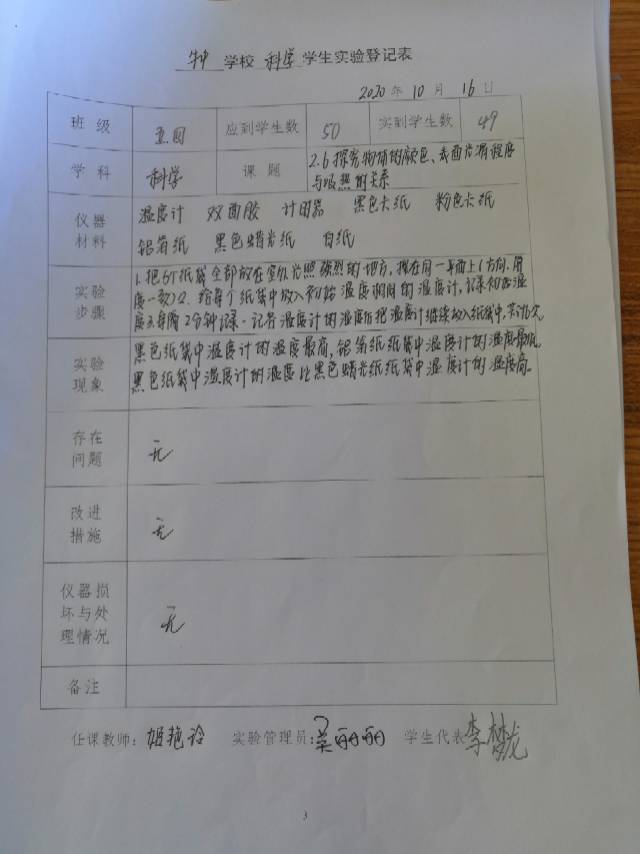 学校 科学 学生实验登记表
2020 年 10 月 16 日
班级 五四 应到学生数 50 实到学生数 49
学科 科学 课题 2.6 探究物体的颜色、表面光滑程度
与吸热的关系
仪器材料
温度计 双面胶 计时器 黑色卡纸 粉色卡纸
铝箔纸 黑色蜡光纸 白纸
实验步骤
1. 把5个纸袋全部放在室外光照强烈的地方，摆在同一平面上(方向、角
度一致) 2. 给每个纸袋中放入初始温度相同的温度计，记录初始温
度 每隔2分钟记录一记 温度计的温度 把温度计继续放入纸袋中，共 次
实验现象
黑色纸袋中温度计的温度最高，铝箔纸纸袋中温度计的温度最低。
黑色纸袋中温度计的温度比黑色蜡光纸纸袋中温度计的温度高。
存在问题
无
改进措施
无
仪器损坏与处理情况
无
备注
任课教师：姬艳玲 实验管理员：吴丽丽 学生代表 李梦龙
3